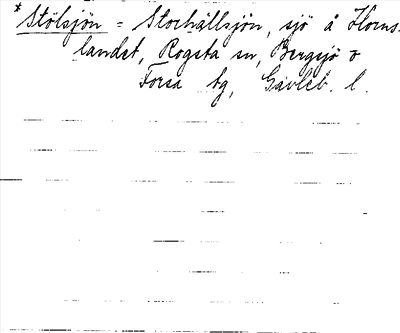 *Stölsjön = Storhällsjön, sjö å Horns-
landet, Rogsta sn, Bergsjö o
Forsa tg, Gävleb. l.